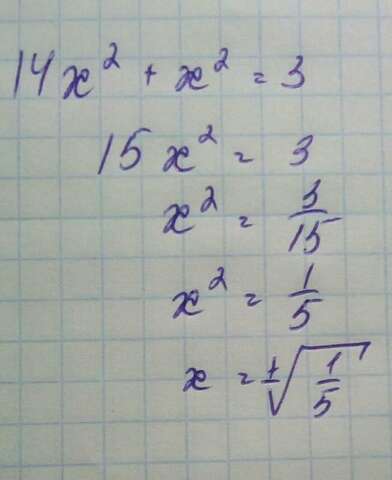 14x² + x² = 3
15x² = 3
x² = 3/15
x² = 1/5
x = ±√(1/5)